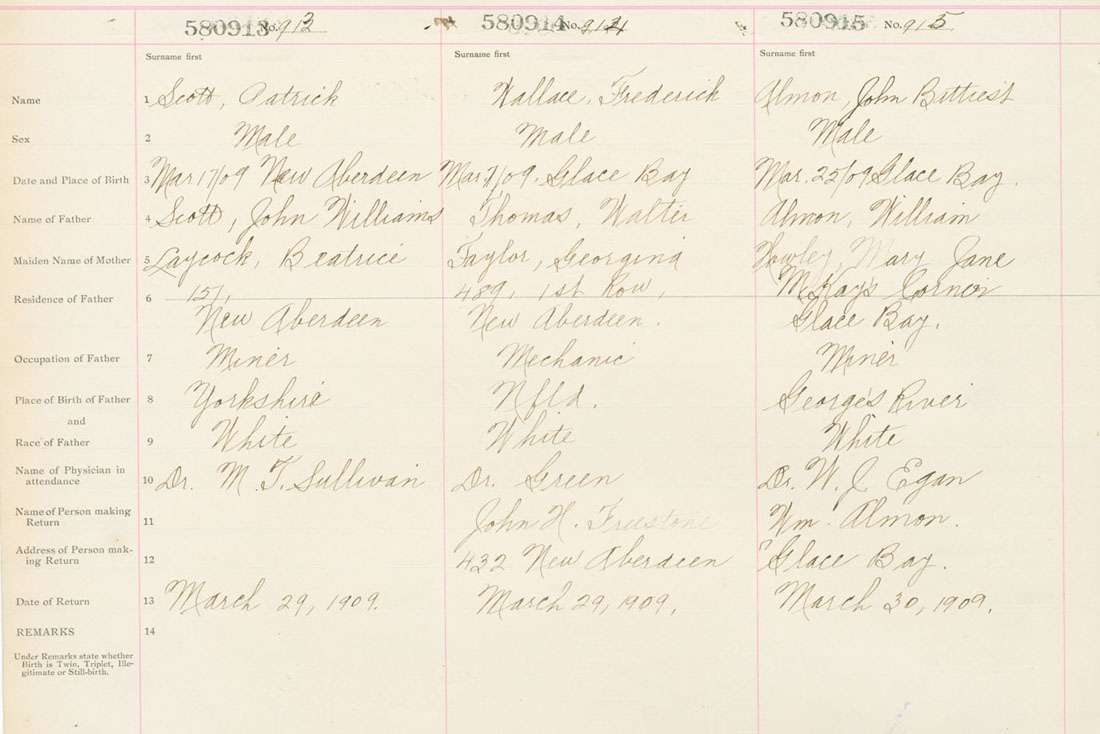 580913 No. 913 580914 No. 914 580915 No. 915
Surname first Surname first Surname first
Name 1 Scott, Patrick Wallace, Frederick Almon, John Battiest
Sex 2 Male Male Male
Date and Place of Birth 3 Mar 17/09 New Aberdeen Mar 7/09. Glace Bay Mar. 25/09 Glace Bay.
Name of Father 4 Scott, John Williams Thomas, Walter Almon, William
Maiden Name of Mother 5 Laycock, Beatrice Taylor, Georgina Mary Jane
Residence of Father 6 157, 489, 1st Row, McKay's Corner
New Aberdeen New Aberdeen. Glace Bay.
Occupation of Father 7 Miner Mechanic Miner
Place of Birth of Father 8 Yorkshire Nfld. George's River
and
Race of Father 9 White White White
Name of Physician in
attendance 10 Dr. M. T. Sullivan Dr. Green Dr. W. J. Egan
Name of Person making
Return 11 John H. Freestone Wm. Almon.
Address of Person mak-
ing Return 12 432 New Aberdeen Glace Bay.
Date of Return 13 March 29, 1909. March 29, 1909. March 30, 1909.
REMARKS 14
Under Remarks state whether
Birth is Twin, Triplet, Ille-
gitimate or Still-birth.